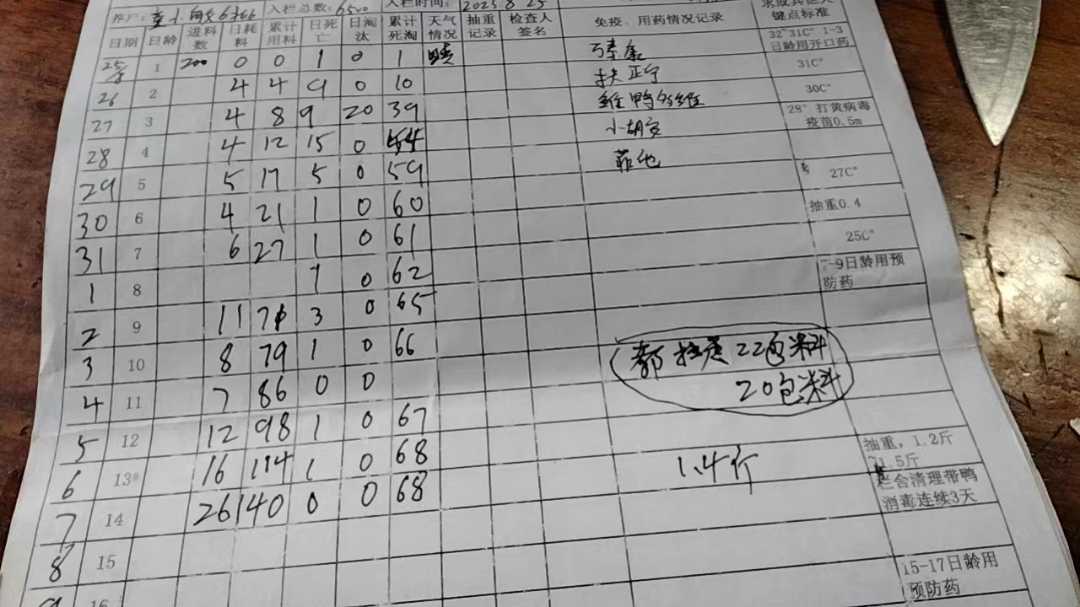 入栏总数:6500 入栏时间:2023 8 25
日期 日龄 进料数 日耗料 累计用料 日死亡 日淘汰 累计死淘 天气情况 抽重记录 检查人签名 免疫、用药情况记录 键点标准
25/8 1 200 0 0 1 0 1 晴 32°31C° 1-3日龄用开口药
26 2 4 4 9 0 10 扶正宁 31C°
27 3 4 8 9 20 39 30C°
28 4 4 12 15 0 54 28°打黄病毒疫苗0.5m
29 5 5 17 5 0 59 27C°
30 6 4 21 1 0 60 抽重0.4
31 7 6 27 1 0 61 25C°
1 8 1 0 62 7-9日龄用预防药
2 9 11 71 3 0 65
3 10 8 79 1 0 66
4 11 7 86 0 0
都拉走22包料
20包料
5 12 12 98 1 0 67
6 13 16 114 1 0 68 1.4斤 抽重,1.2斤 1.5斤
7 14 26 140 0 0 68 合清理带鸭消毒连续3天
8 15
15-17日龄用预防药
16